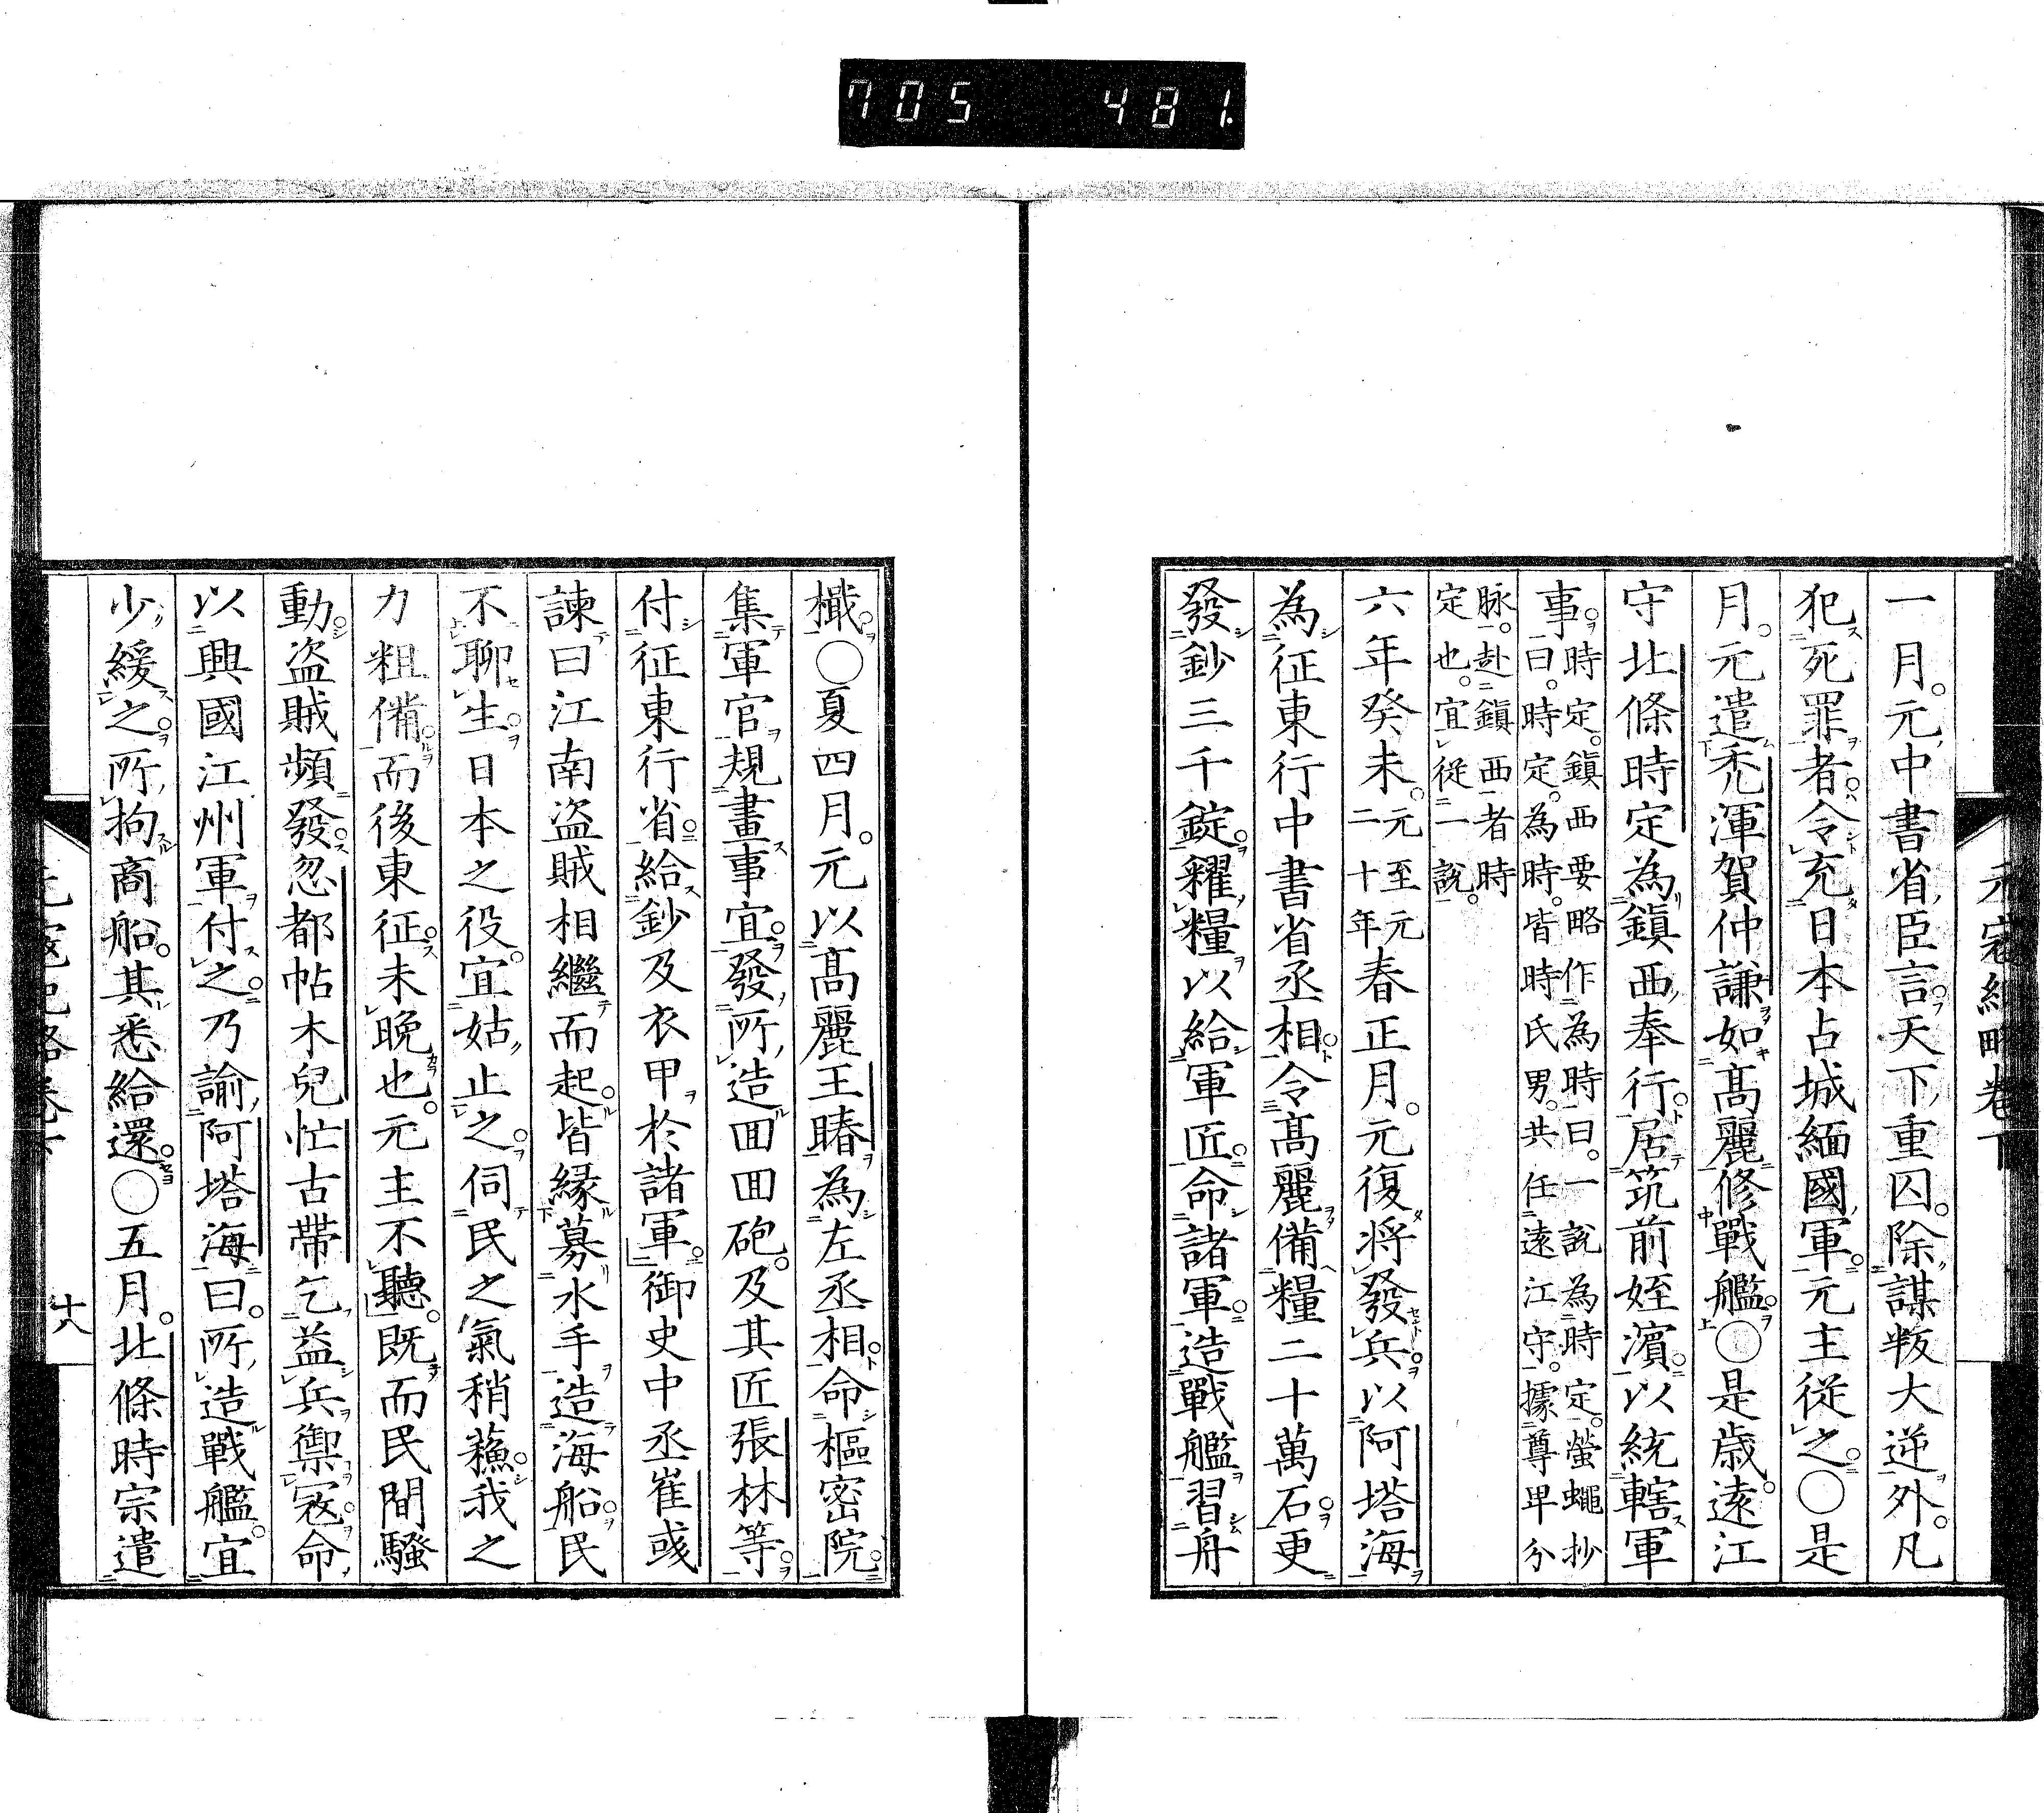 705 481
元寇紀略卷下
一月。元中書省臣言。天下重囚。除謀叛大逆外。凡
犯死罪者。令充日本占城緬國軍。元主從之。○是
月。元遣禿渾賀仲謙如高麗修戰艦。○是歳。遠江
守北條時定為鎭西奉行。居筑前姪濱。以統轄軍
事。時定。鎭西要略作為時。一說為時定。螢蠅抄
曰。時定。為時。皆時氏男。共任遠江守。據尊卑分
脉。赴鎭西者時
定也。宜從一說。
六年癸未。元至元
二十年春正月。元復將發兵。以阿塔海
為征東行中書省丞相。令高麗備糧二十萬石。更
發鈔三千錠。糴糧以給軍匠。命諸軍。造戰艦習舟
檝。○夏四月。元以高麗王睶為左丞相。命樞密院。
集軍官規畫事宜。發所造囬囬砲。及其匠張林等。
付征東行省。給鈔及衣甲於諸軍。御史中丞崔彧
諫曰江南盜賊相繼而起。皆縁募水手造海船。民
不聊生。日本之役。宜姑止之。伺民之氣稍蘓。我之
力粗備。而後東征。未晚也。元主不聽。既而民間騷
動。盜賊頻發。忽都帖木兒忙古帶乞益兵禦寇。命
以興國江州軍付之。乃諭阿塔海曰。所造戰艦。宜
少緩之。所拘商船。其悉給還。○五月。北條時宗遣
元寇紀略卷下
十八